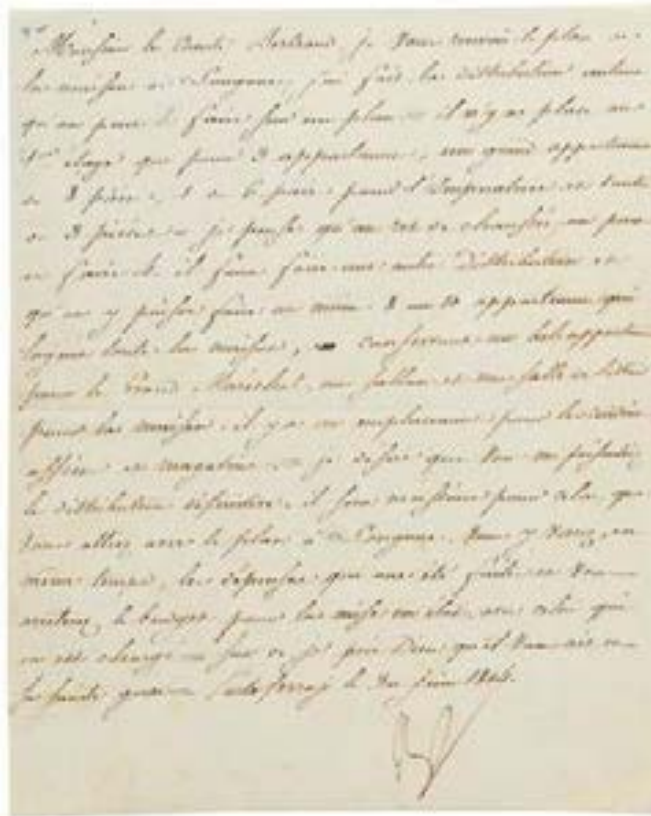 Monsieur le Comte Bertrand, je vous renvoie le plan de
la maison de Longone, j'ai fait la distribution
qu'on peut faire sur un plan il n'y a place au
1er étage que pour 3 appartemens, un grand appartement
de 8 pièces, 1 de 6 pour l'Impératrice et
de 3 pièces je pense qu'au rez de chaussée, on peut
faire il faut faire une autre distribution et
qu'on y puisse faire au moins 8 ou 10 appartemens qui
toute la maison, conservant un bel appartement
pour le Grand Maréchal, un sallon et une salle à
pour la maison. il y a un emplacement pour les cuisines
offices et magasins je désire que vous me fassiez
la distribution définitive. il sera nécessaire pour cela que
vous alliez avec le plan à Longone. vous y verrez, en
même temps, les dépenses qui ont été faites et vous
arrêterez le budget pour la mise en état, avec celui qui
en est chargé sur ce je prie Dieu qu'il vous ait en
sa sainte garde Porto ferrajo le juin 1814.